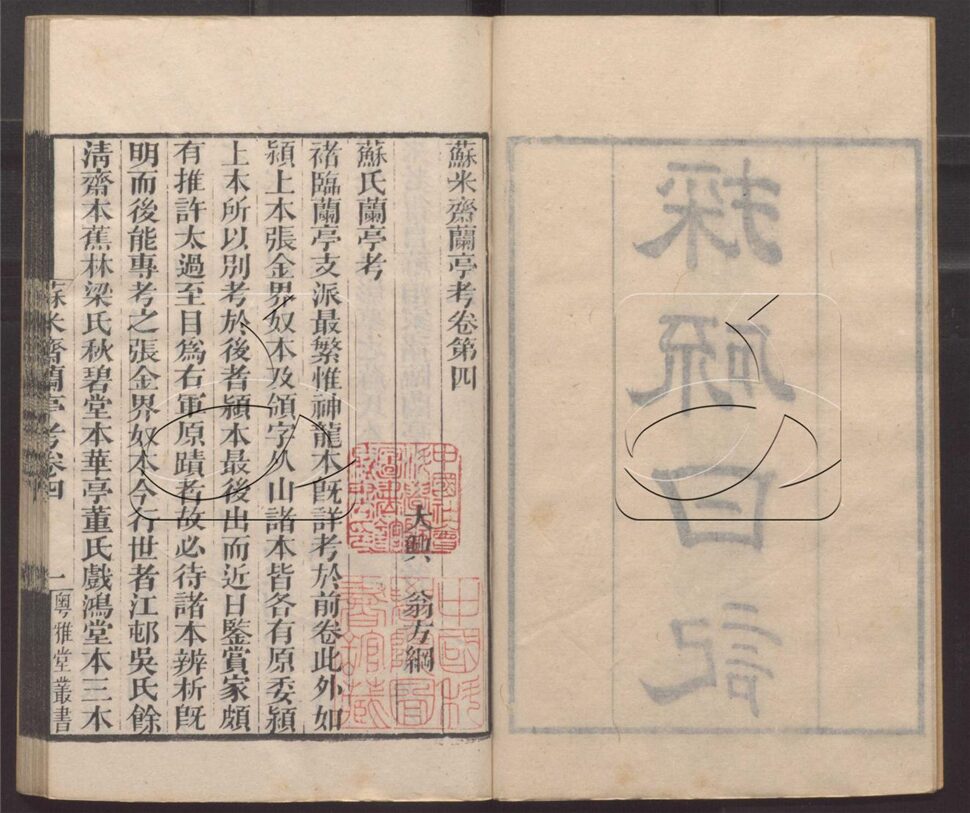 採硫日記
蘇米齋蘭亭考卷第四
大興 翁方綱
蘇氏蘭亭考
褚臨蘭亭支派最繁惟神龍本旣詳考於前卷此外如
潁上本張金界奴本及領字从山諸本皆各有原委潁
上本所以别考於後者潁本最後出而近日鑒賞家頗
有推許太過至目爲右軍原蹟者故必待諸本辨析旣
明而後能專考之張金界奴本今行世者江邨吳氏餘
清齋本蕉林梁氏秋碧堂本華亭董氏戲鴻堂本三本
蘇米齋蘭亭考卷四 一 粵雅堂叢書
中國科
學院圖
書館藏